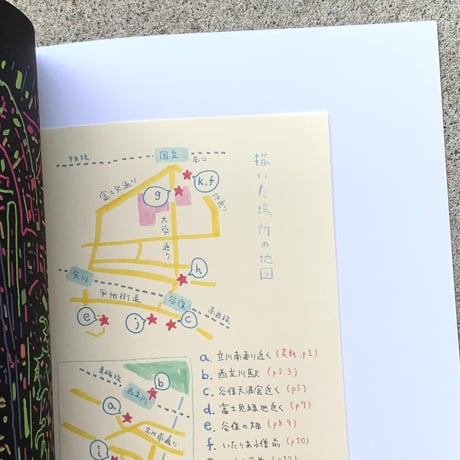 描いた場所の地図
中央線
国立
南口
富士見通り
g
k.f
旭通り
大学通り
h
矢川
甲州街道
谷保
南武線
e
j
c
青梅線
西立川
b
a
立川南通り
i
a. 立川南通り近く (表紙.p1)
b. 西立川駅 (p2.3)
c. 谷保天満宮近く (p5)
d. 富士見緑地近く (p7)
e. 谷保の畑 (p8.9)
f. いたりあ小僧前 (p10)